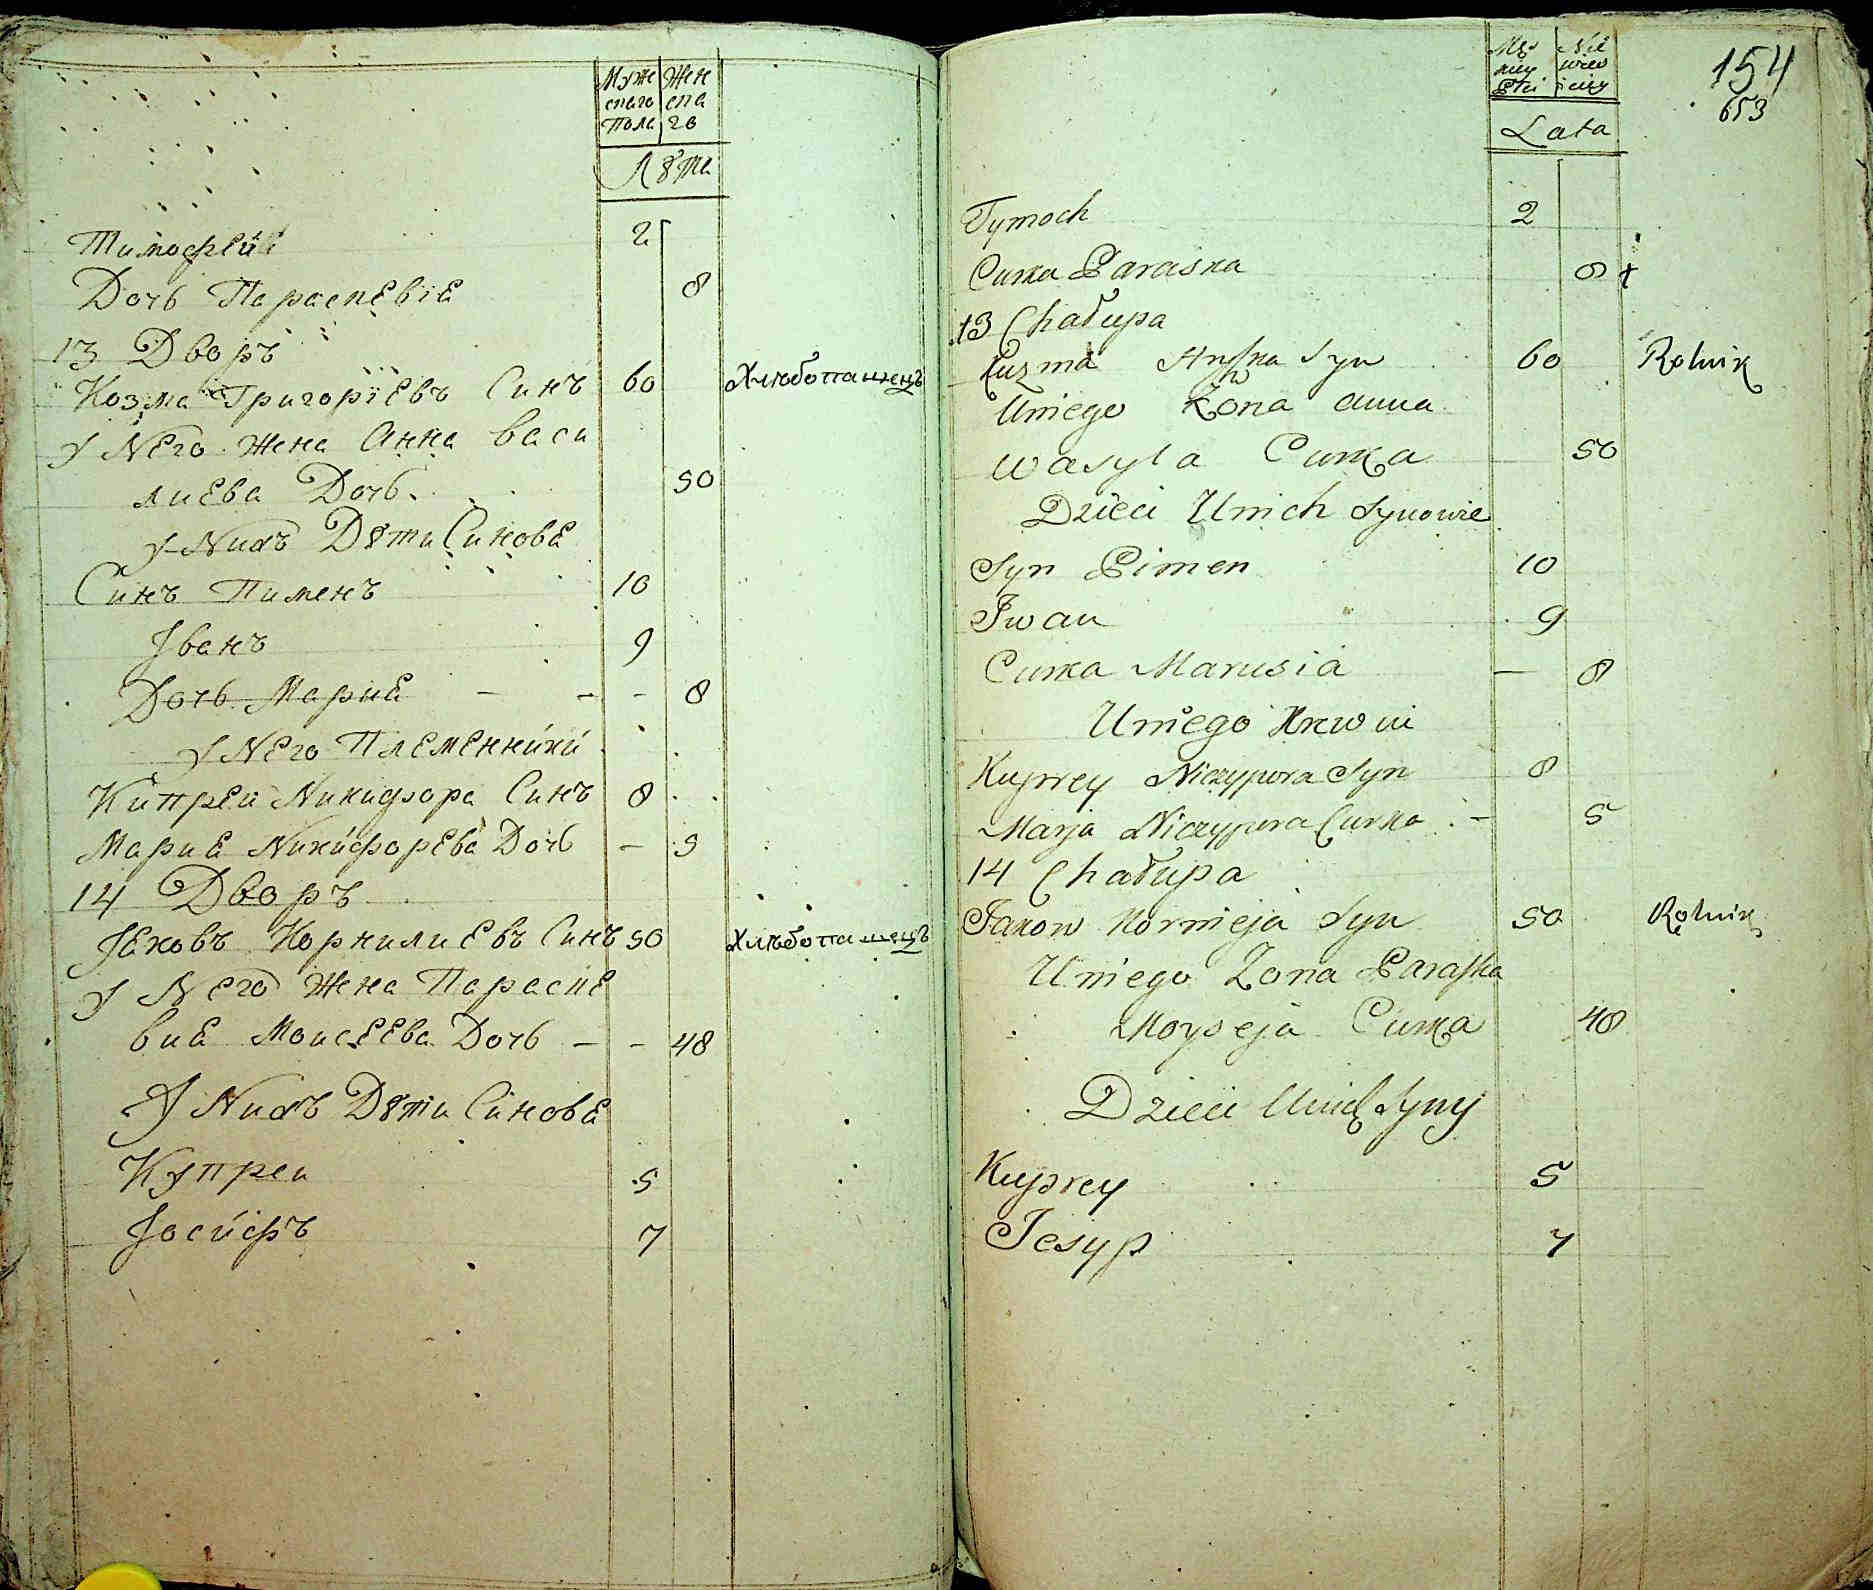 Муже Жен
скаго ска
Пола го
Лѣта
Тимофей 2
Дочь Параскевія 8
13 Дворъ
Козма Григоріевъ Синъ 60 Хлѣбопашецъ
У Него Жена Анна Васи
лиева Дочь 50
У Нихъ Дѣти Синове
Синъ Пименъ 10
Іванъ 9
Дочь Мариа - - - 8
У Него Племенники
Кипреи Никифора Синъ 8
Мариа Никифорева Дочь - 5
14 Дворъ
Іяковъ Корнилиевъ Синъ 50 Хлѣбопашецъ
У Него Жена Параске
виа Моисеева Дочь - - 48
У Нихъ Дѣти Синове
Купреи 5
Іосифъ 7
154
653
Lata
Tymoch 2
Curka Paraska 8
13 Chałupa
Kuzma Hryszka Syn 60 Rolnik
U niego Żona Anna
Wasyla Curka 50
Dzieci U nich Synowie
Syn Pimen 10
Iwan 9
Curka Marusia - 8
U niego Krwni
Kuprey Niczypora Syn 8
Marja Niczypora Curka - 5
14 Chałupa
Jakow Kornieja Syn 50 Rolnik
U niego Zona Paraszka
Moyseja Curka 48
Dzieci U nich Syny
Kuprey 5
Jesyp 7